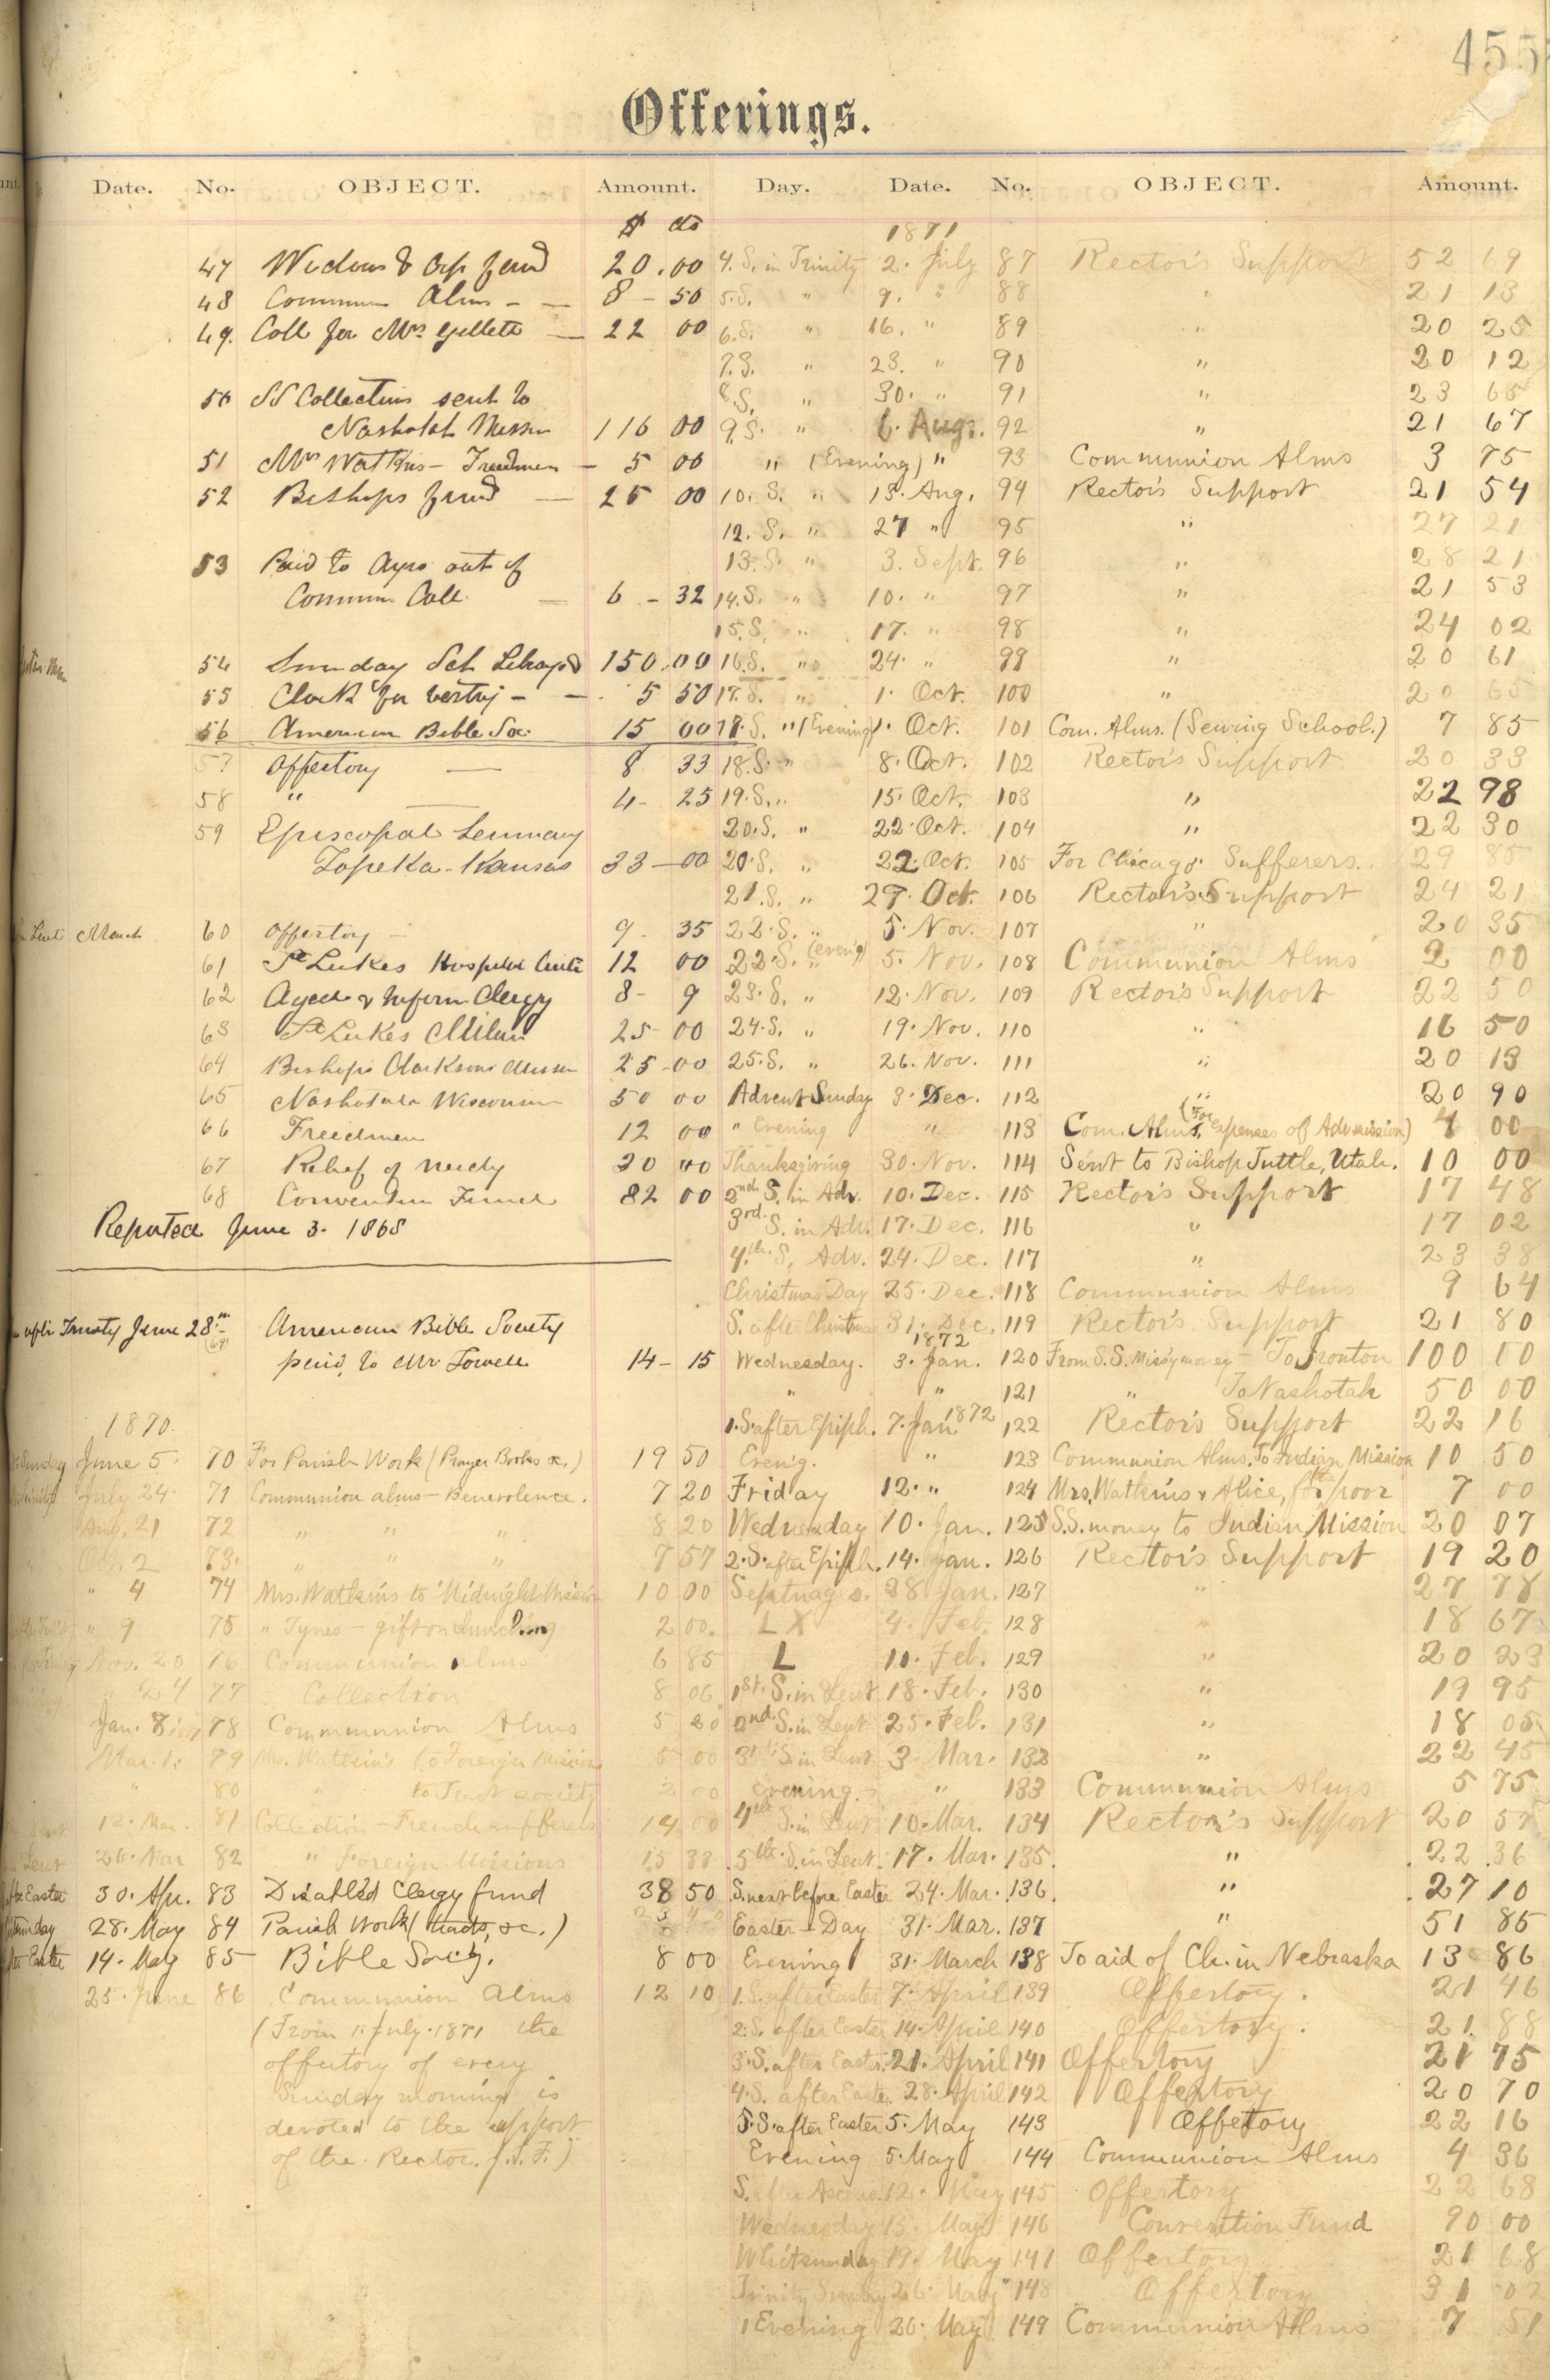 455
Offerings.
Date. No. OBJECT. Amount.
$ cts
47 Widows & Orp fund 20.00
48 Commun Alms - — 8 - 50
49. Coll for Mrs Gillett — 22 00
50 SS Collections sent to
Nashotah Mission 116 00
51 Mrs Watkins - Freedmen - 5 00
52 Bishops fund — 25 00
53 Paid to Ayres out of
Commun Coll. — 6 - 32
54 Sunday Sch 150.00
55 Clock for Vestry - — 5 50
56 American Bible Soc. 15 00
57 Offertory — 8 33
58 " — 4 - 25
59 Episcopal Seminary
Topeka - Kansas 33 - 00
Lent March 60 Offertory - 9 - 35
61 St Lukes Hospital 12 00
62 Aged & Infirm Clergy 8 - 9
63 St Lukes 25 - 00
64 Bishop Clarksons Mission 25 - 00
65 Nashotah Wisconsin 50 00
66 Freedmen 12 00
67 Relief of needy 20 00
68 Convention Fund 82 00
Reported June 3. 1868
Trinity June 28th American Bible Society
paid to Mr 14 - 15
1870.
Sunday June 5. 70 For Parish Work (Prayer Books &c.) 19 50
July 24. 71 Communion alms - Benevolence. 7 20
Aug. 21 72 " " " 8 20
Oct. 2 73. " " " 7 57
" 4 74 Mrs. Watkins to Midnight Mission 10 00
" 9 75 " Tynes - gift on 2 00.
Nov. 20 76 Communion alms 6 85
" 24 77 Collection 8 06
Jan. 8 1871 78 Communion Alms 5 20
Mar. 1. 79 Mrs. Watkins to Foreign Mission 5 00
" 80 " to Tract society 2 00
12. Mar. 81 Collection - French sufferers 14 00
Lent 26. Mar 82 " Foreign Missions 15 38
Easter 30. Apr. 83 Disabled Clergy fund 38 50
28. May 84 Parish Work (tracts, &c.)
Easter 14. May 85 Bible Socy. 8 00
25. June 86 Communion Alms 12 10
(From 1. July. 1871 the
offertory of every
Sunday morning is
devoted to the support
of the Rector. J.T.F.)
Day. Date. No. OBJECT. Amount.
1871
4. S. in Trinity 2. July 87 Rector's Support 52 69
5. S. " 9. " 88 " 21 13
6. S. " 16. " 89 " 20 25
7. S. " 23. " 90 " 20 12
8. S. " 30. " 91 " 23 65
9. S. " 6. Aug. 92 " 21 67
" (Evening) " 93 Communion Alms 3 75
10. S. " 13. Aug. 94 Rector's Support 21 54
12. S. " 27 " 95 " 27 21
13. S. " 3. Sept. 96 " 28 21
14. S. " 10. " 97 " 21 53
15. S. " 17. " 98 " 24 02
16. S. " 24. " 99 " 20 61
17. S. " 1. Oct. 100 " 20 65
17. S. " (Evening) 1. Oct. 101 Com. Alms. (Sewing School.) 7 85
18. S. " 8. Oct. 102 Rector's Support 20 33
19. S. " 15. Oct. 103 " 22 98
20. S. " 22. Oct. 104 " 22 30
20. S. " 22. Oct. 105 For Chicago Sufferers. 29 85
21. S. " 29. Oct. 106 Rector's Support 24 21
22. S. " 5. Nov. 107 " 20 35
22. S. " (even'g) 5. Nov. 108 Communion Alms 2 00
23. S. " 12. Nov. 109 Rector's Support 22 50
24. S. " 19. Nov. 110 " 16 50
25. S. " 26. Nov. 111 " 20 13
Advent Sunday 3. Dec. 112 " 20 90
" Evening " 113 Com. Alms, (For expenses of Adv. mission) 4 00
Thanksgiving 30. Nov. 114 Sent to Bishop Tuttle, Utah. 10 00
2nd S. in Adv. 10. Dec. 115 Rector's Support 17 48
3rd. S. in Adv. 17. Dec. 116 " 17 02
4th. S. Adv. 24. Dec. 117 " 23 38
Christmas Day 25. Dec. 118 Communion Alms 9 64
S. after Christmas 31. Dec. 119 Rector's Support 21 80
1872
Wednesday. 3. Jan. 120 From S.S. Miss'y money - To Ironton 100 00
" " 121 " To Nashotah 50 00
1. S. after Epiph. 7. Jan. 1872 122 Rector's Support 22 16
Even'g. " 123 Communion Alms, To Indian Mission 10 50
Friday 12. " 124 Mrs. Watkins & Alice, for the poor 7 00
Wednesday 10. Jan. 125 S.S. money to Indian Mission 20 07
2. S. after Epiph. 14. Jan. 126 Rector's Support 19 20
Septuages. 28 Jan. 127 " 27 78
L X 4. Feb. 128 " 18 67
L 11. Feb. 129 " 20 23
1st. S. in Lent 18. Feb. 130 " 19 95
2nd. S. in Lent 25. Feb. 131 " 18 05
3rd. S. in Lent 3. Mar. 132 " 22 45
Evening. " 133 Communion Alms 5 75
4th S. in Lent 10. Mar. 134 Rector's Support 20 57
5th. S. in Lent. 17. Mar. 135. " 22 36
S. next before Easter 24. Mar. 136. " 27 10
Easter - Day 31. Mar. 137 " 51 85
Evening 31. March 138 To aid of Ch. in Nebraska 13 86
1. S. after Easter 7. April 139 Offertory. 21 46
2. S. after Easter 14. April 140 Offertory. 21 88
3. S. after Easter. 21. April 141 Offertory 21 75
4. S. after Easter 28. April 142 Offertory 20 70
5. S. after Easter 5. May 143 Offetory 22 16
Evening 5. May 144 Communion Alms 4 36
S. after Ascens. 12. May 145 Offertory 22 68
Wednesday 15. May 146 Convention Fund 90 00
Whitsunday 19. May 147 Offertory 21 68
Trinity Sunday 26. May 148 Offertory 31 02
Evening 26. May 149 Communion Alms 7 51